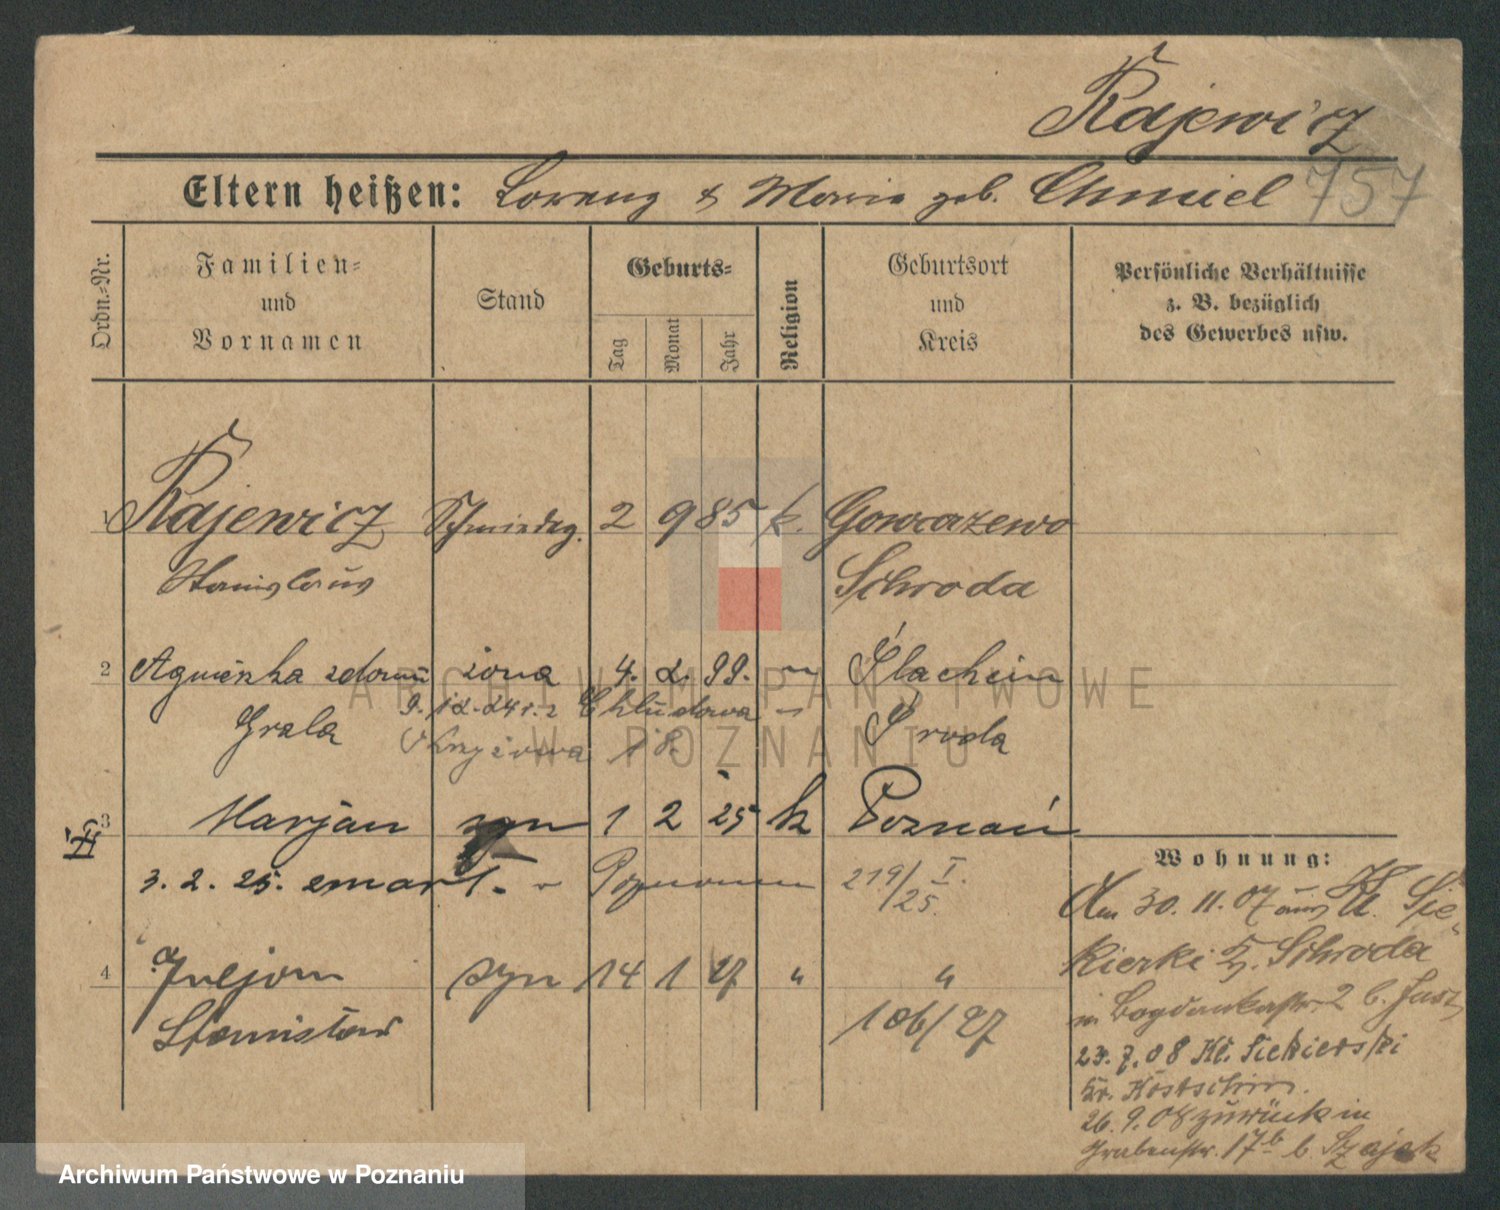 Rajewicz
Eltern heißen: Lorenz & Maria geb. Chmiel 757
Ordn.-Nr.
Familien- und Vornamen
Stand
Geburts-
Tag
Monat
Jahr
Religion
Geburtsort und Kreis
Persönliche Verhältnisse z. B. bezüglich des Gewerbes usw.
1 Rajewicz Schmiedeg. 2 9 85 k. Gowarzewo
Stanislaus Schroda
2 Agnieszka z domu żona 4. 2. 99. Śrada
Grala 9. 12. 24 r. z Chludowa
18.
3 Marjan syn 1 2 25 k Poznań
3. 2. 25. zmarł. 219/25. I.
4 Juljan syn 14 1 27 " "
Stanisław 106/27
Wohnung:
Am 30. 11. 07 aus Kl. Sie-
kierki Kr. Schroda
in Bogdankastr. 2 b.
23. 7. 08 Kl. Siekierki
Kr. Kostschin.
26. 9. 08 zurück in
Grabenstr. 17b b. Szajek
ARCHIWUM PAŃSTWOWE
W POZNANIU
Archiwum Państwowe w Poznaniu